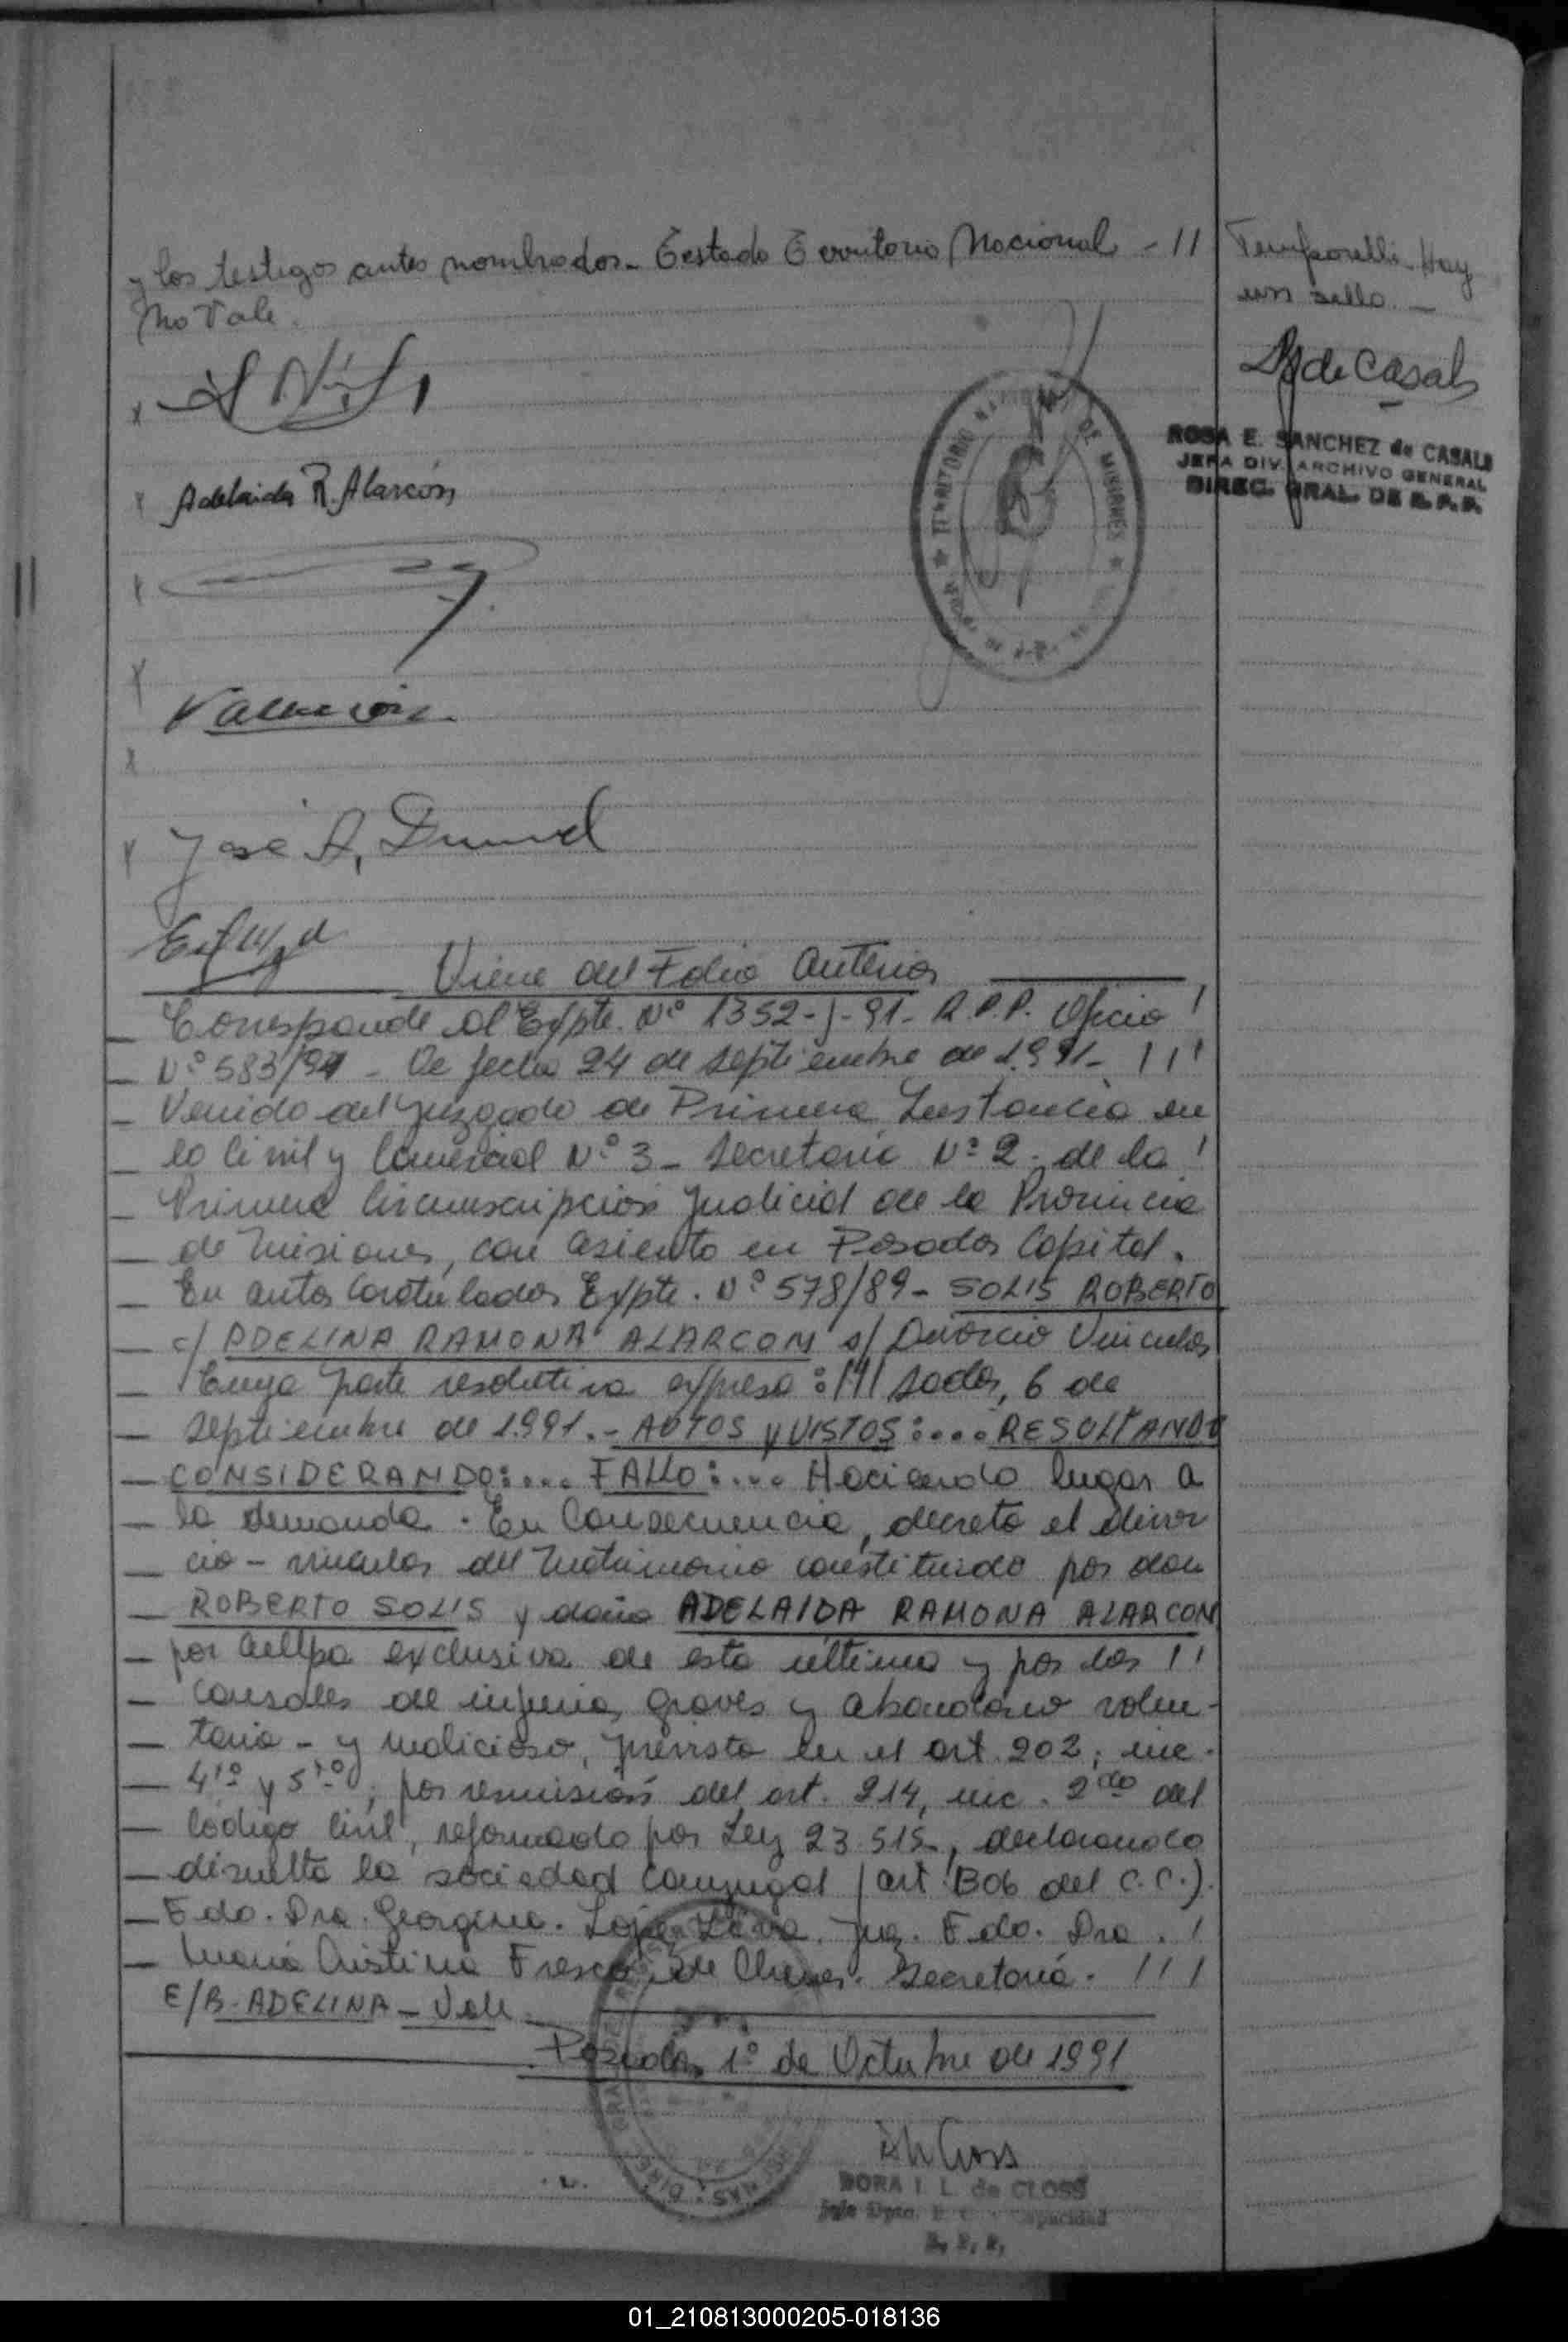 y los testigos antes nombrados - Testado Territorio Nacional - //
No Vale.
Temporelli - Hay
un sello. —
de Casals
ROSA E. SANCHEZ de CASALS
JEFA DIV. ARCHIVO GENERAL
DIREC. GRAL. DE R.P.P.
TERRITORIO DE MISIONES
Adelaida R. Alarcón
José A.
Viene del Folio Anterior
Corresponde al Expte. Nº 1352-J-91- R.P.P. Oficio /
Nº 583/91 - De fecha 24 de septiembre de 1.991- ///
Venido del Juzgado de Primera Instancia en
lo Civil y Comercial Nº 3 - Secretaría Nº 2 - de la /
Primera Circunscripción Judicial de la Provincia
de Misiones, con asiento en Posadas Capital.
En autos Caratulados Expte. Nº 578/89 - SOLIS ROBERTO
c/ ADELINA RAMONA ALARCON s/ Divorcio Vincular
Cuya parte resolutiva expresa: ///sadas, 6 de
septiembre de 1.991.- AUTOS y VISTOS:.... RESULTANDO
CONSIDERANDO:... FALLO:... Haciendo lugar a
la demanda. En Consecuencia, decreto el divor
cio - vincular del Matrimonio constituido por don
ROBERTO SOLIS y doña ADELAIDA RAMONA ALARCON
por culpa exclusiva de esta última y por las //
causales de injurias graves y abandono volun-
tario - y malicioso, prevista en el art. 202, inc.
4to y 5to, por remisión del art. 214, inc. 2do del
Código Civil, reformado por Ley 23.515, declarando
disuelta la sociedad Conyugal (art. 1306 del C.C.).
Fdo. Dra. Georgina. Juez. Fdo. Dra. /
María Cristina Fresco de Secretaría. ///
E/B. ADELINA - Vale.
Posadas, 1º de Octubre de 1991
DORA I. L. de CLOSS
Jefe Dpto. Capacidad
R. P. P.
01_210813000205-018136